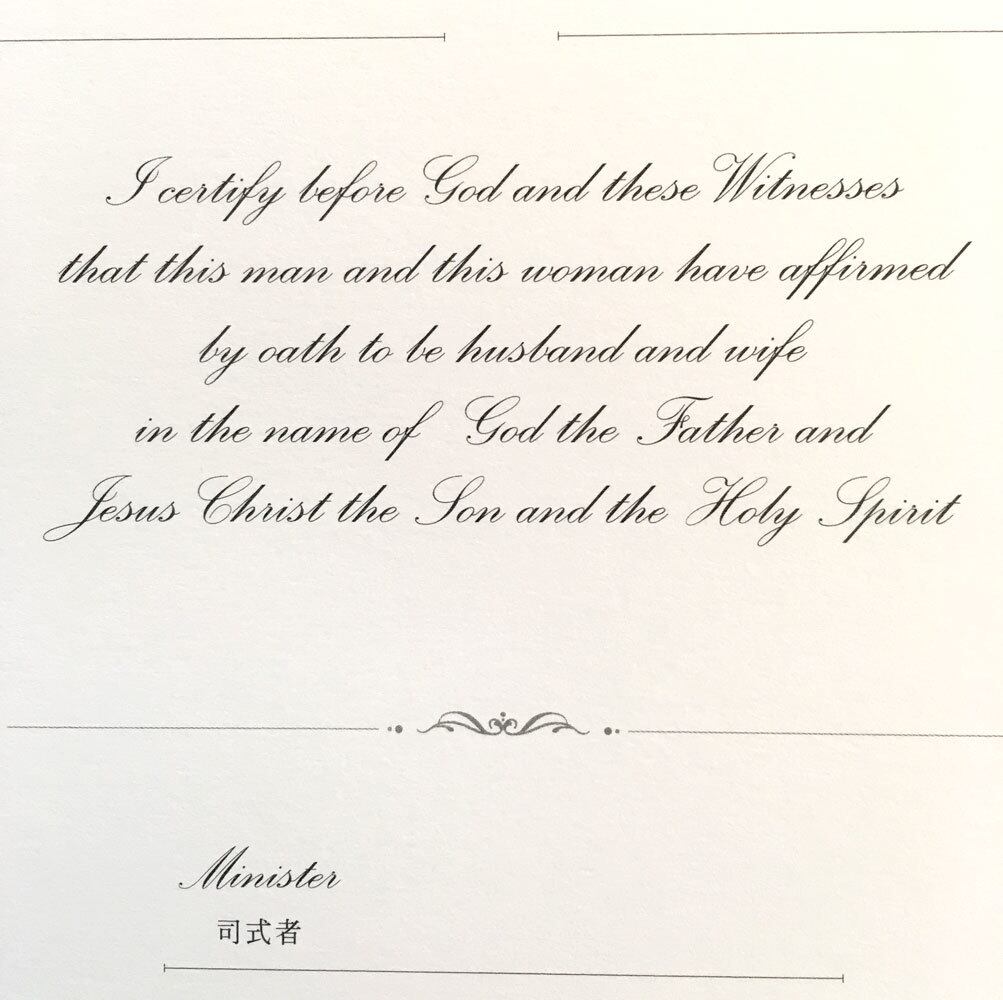 I certify before God and these Witnesses
that this man and this woman have affirmed
by oath to be husband and wife
in the name of God the Father and
Jesus Christ the Son and the Holy Spirit
Minister
司式者